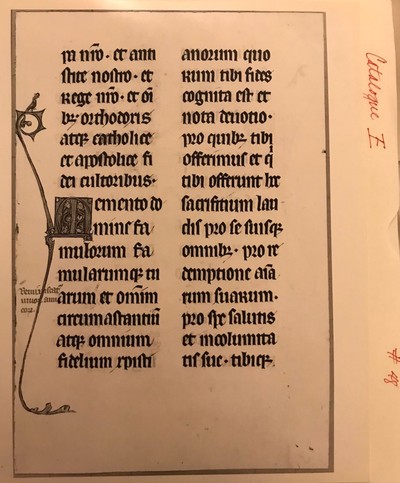 pa nro · et anti
stite nostro · et
Rege nro · et oi
bz orthodoxis
atqz catholice
et apostolice fi
dei cultoribus ·
Memento do
mine fa
mulorum fa
mularumqz tu
arum et omim
circum astantiu
atqz omnium
fidelium xpisti
anorum quo
rum tibi fides
cognita est et
nota deuotio ·
pro quibz tibi
offerimus et q
tibi offerunt hc
sacrifitium lau
dis pro se suisqz
omnibz · pro re
demptione aia
rum suarum ·
pro spe salutis
et incolumita
tis sue · tibiqz
Catalogue I
# 48